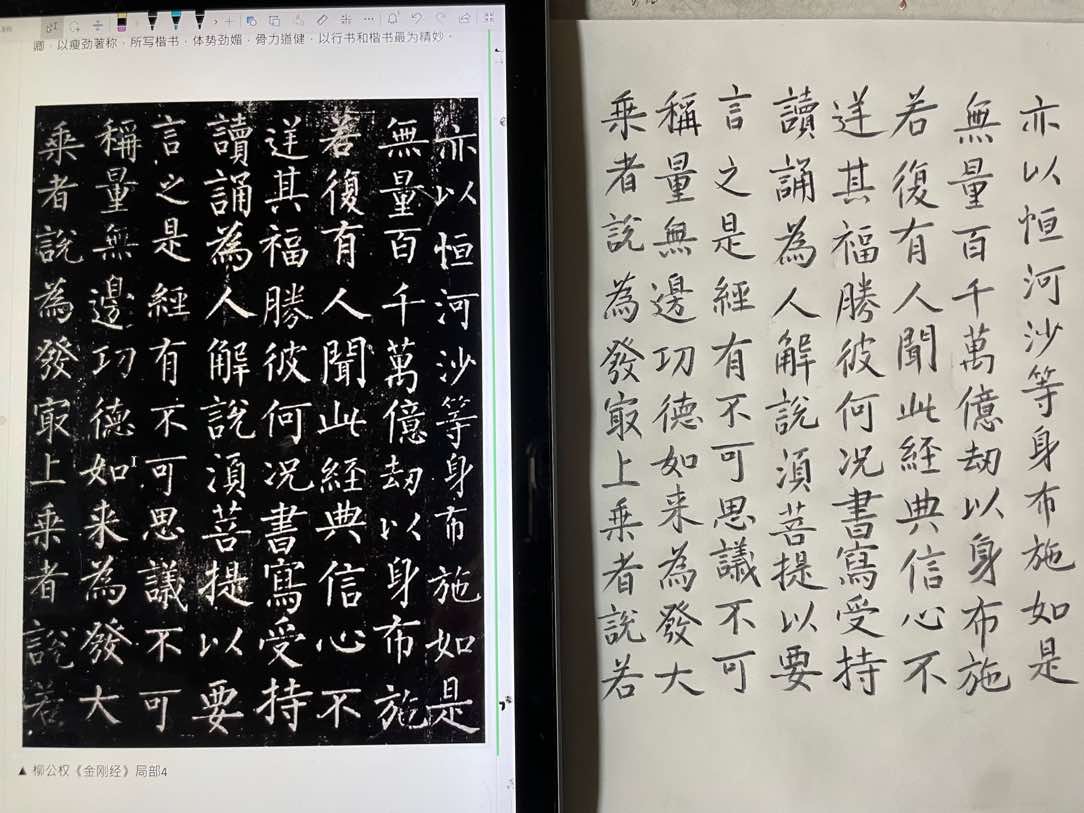 卿，以瘦劲著称，所写楷书，体势劲媚，骨力道健，以行书和楷书最为精妙。
亦以恒河沙等身布施如是
無量百千萬億劫以身布施
若復有人聞此經典信心不
逆其福勝彼何况書寫受持
讀誦為人解說須菩提以要
言之是經有不可思議不可
稱量無邊功德如来為發大
乗者說為發冣上乗者說若
▲ 柳公权《金刚经》局部4
亦以恒河沙等身布施如是
無量百千萬億劫以身布施
若復有人聞此經典信心不
逆其福勝彼何况書寫受持
讀誦為人解說須菩提以要
言之是經有不可思議不可
稱量無邊功德如来為發大
乗者說為發冣上乗者說若